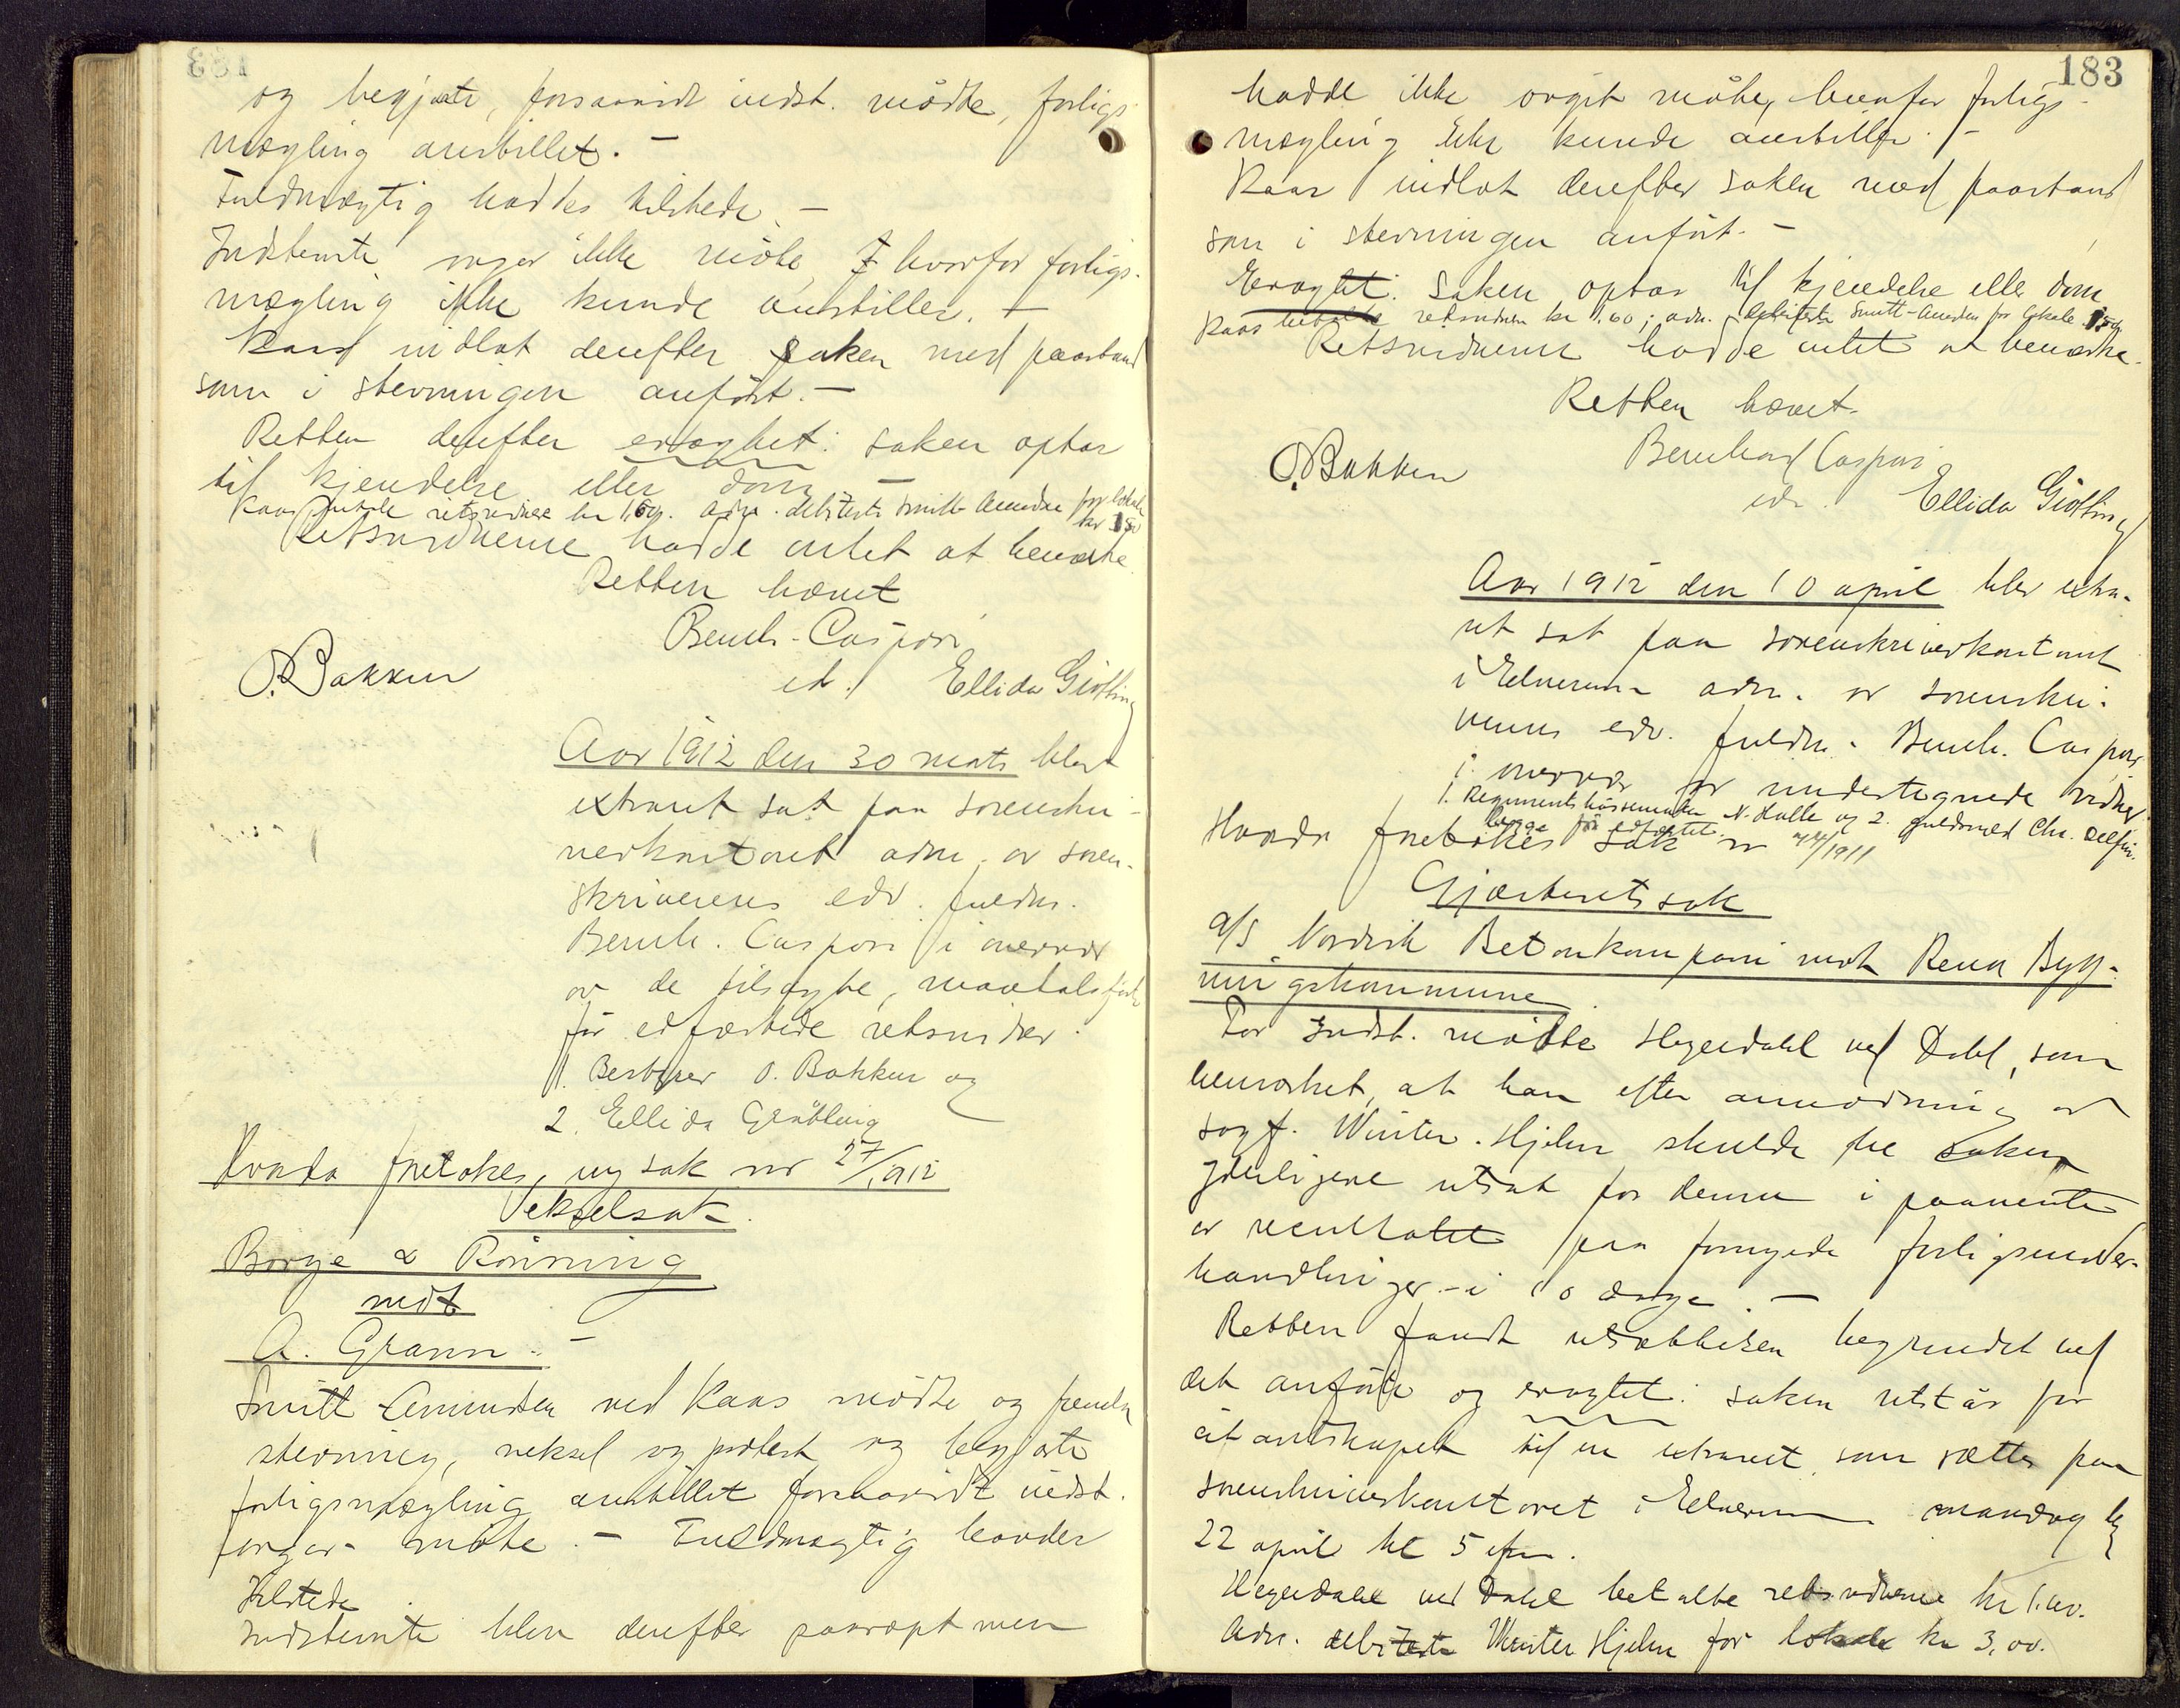 og begjærte, forsaavidt indst. mødte, forligs
mægling anstillet. –
Fuldmægtig haddes tilstede –
Indstevnte mødte ikke hvorfor forligs-
mægling ikke kunde anstilles. –
Kaas indlot derefter saken med paastand
som i stevningen anført. –
Retten derefter eragtet: saken optas
til kjendelse eller dom –
Kaas betalte retsvidnene kr 1,60. Adm. debiterte Smitt Amundsen for lokale
kr 1,50
Retsvidnerne hadde intet at bemerke
Retten hævet
Bernh. Caspari
O. Bakken
edv. Ellida Grøtting
Aar 1912 den 30 mars blev
extraret sat paa sorenskri-
verkontoret adm. av soren-
skriverens edv. fuldm.
Bernh. Caspari i overvær
av de tilsagte, mantalsførte
før edfæstede retsvidner
1. Bestyrer O. Bakken og
2. Ellida Grøtting
Hvorda foretokes, ny sak nr 27/1912
Vekselsak
Borge & Rønning
mot
A. Grann. –
Smitt Amundsen ved Kaas mødte og fremla
stevning, veksel og protest og begjærte
forligsmægling anstillet forsaavidt indst.
møte. – Fuldmægtig havdes
tilstede.
Indstevnte blev derefter paaropt men
183
hadde ikke møte, hvorfor forligs-
mægling ikke kunde anstilles. –
Kaas indlot derefter saken med paastand
som i stevningen anført. –
Eragtet: Saken optas til kjendelse eller dom
Kaas betalte retsvidnene kr 1.60; adm. debiterte Smitt-Amundsen for lokale 1.50
Retsvidnerne hadde intet at bemerke.
Retten hævet.
Bernhard Caspari
O. Bakken
edv. Ellida Grøtting
Aar 1912 den 10 april blev extra-
ret sat paa sorenskriverkontoret
i Elverum adm. av sorenskri-
verens edv. fuldm. Bernh. Caspari
i overvær av undertegnede vidner
1. Regiments N. Halle og 2. guldsmed Chr. Delfin.
begge før edfæstet.
Hvorda foretokes sak nr 44/1911
Gjæsteretssak
A/S Nordisk Betonkompani mot Rena Byg-
ningskommune
For Indst. mødte Hegerdahl ved Dahl, som
bemerket, at han efter anmodning av
sagf. Winter-Hjelm skulde be saken
yderligere utsat for denne i paavente
av resultatet paa fornyede forligsunder-
handlinger – i 10 dage. –
Retten fandt utsættelsen begrundet ved
det anførte og eragtet: saken utstår for
citantskapet til en extraret som sættes paa
sorenskriverkontoret i Elverum mandag
22 april kl 5 efm.
Hegerdahl ved Dahl betalte retsvidnene kr 1.60.
Adm. debiterte Winter Hjelm for lokale kr 3,00.